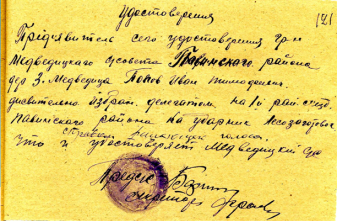 Удостоверения
121
Предявитель сего удостоверения гр-н
Медведицкого с/совета Павинского района
дер З. Медведица Попов Иван
дисвительно избран делегатом на 1й рай
Павинского района на ударник Лесозаготовок
с правом голоса
что и удостоверяет Медведицкий с/с
Председ
Секретарь